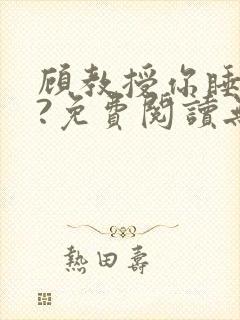 顾教授你睡
?免費閱讀
熱田壽